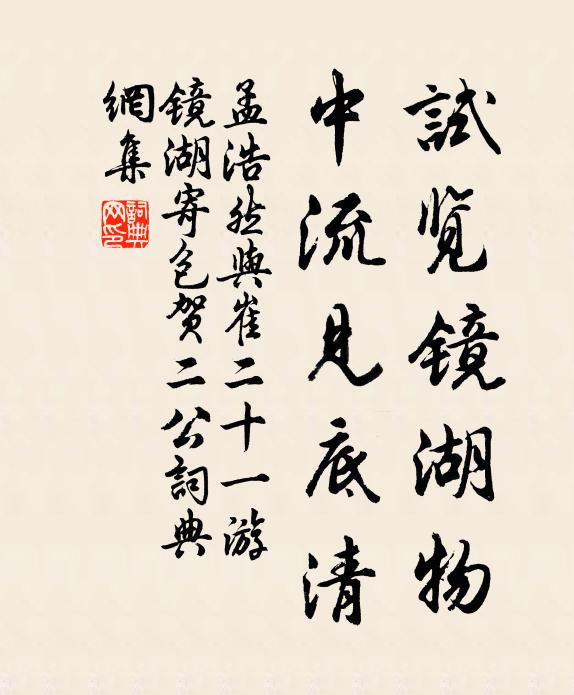 試覽鏡湖物
中流見底清
孟浩然與崔二十一游
鏡湖寄包賀二公詞典
網集
詞典網印